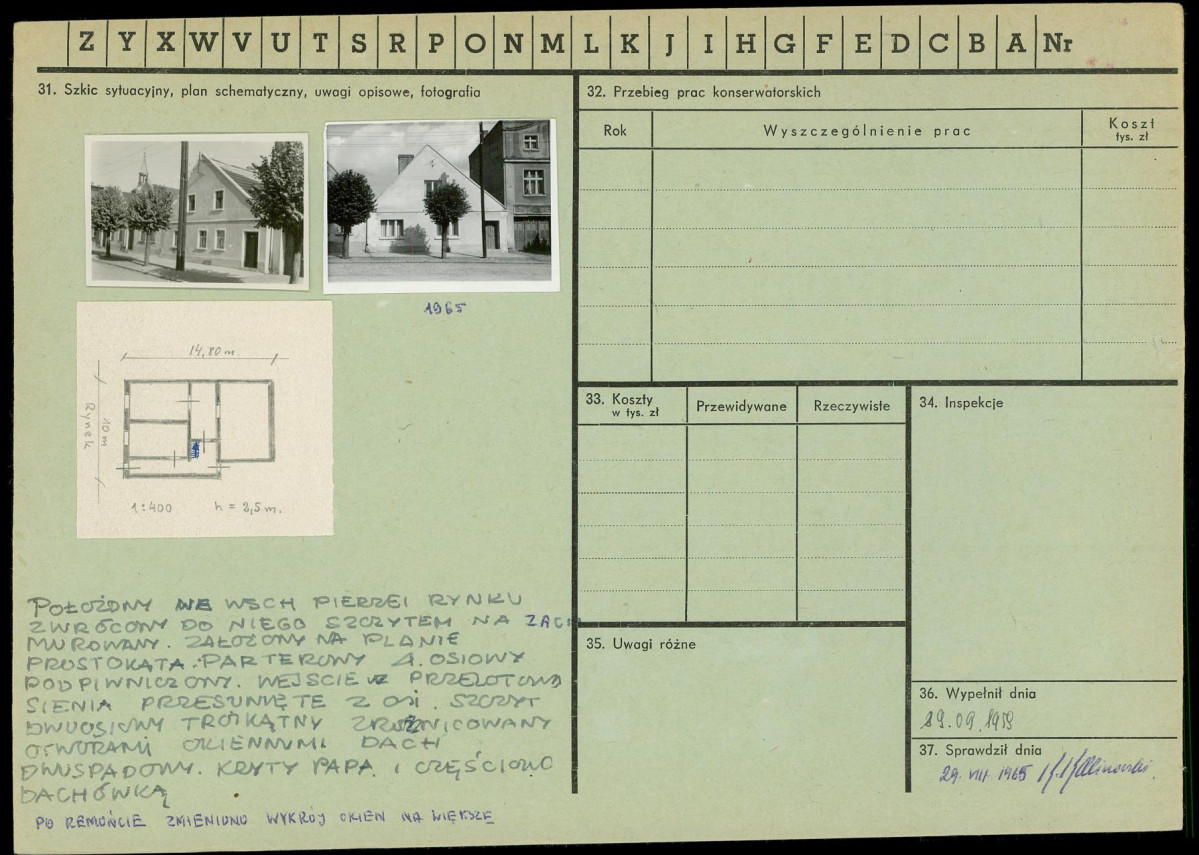 Z Y X W V U T S R P O N M L K J I H G F E D C B A Nr
31. Szkic sytuacyjny, plan schematyczny, uwagi opisowe, fotografia
1965
14,80 m.
Rynek
10 m
1:400 h = 2,5 m.
POŁOŻONY NE WSCH PIERZEI RYNKU
ZWRÓCONY DO NIEGO SZCZYTEM NA ZACH
MUROWANY. ZAŁOŻONY NA PLANIE
PROSTOKĄTA. PARTEROWY 4. OSIOWY
PODPIWNICZONY. WEJŚCIE W PRZELOTOWĄ
SIENIĄ PRZESUNIĘTE Z OSI. SZCZYT
DWUOSIOWY TRÓJKĄTNY ZRÓŻNICOWANY
OTWORAMI OKIENNYMI DACH
DWUSPADOWY. KRYTY PAPĄ I CZĘŚCIOWO
DACHÓWKĄ
PO REMONCIE ZMIENIONO WYKRÓJ OKIEN NA WIĘKSZE
32. Przebieg prac konserwatorskich
Rok Wyszczególnienie prac Koszt tys. zł
33. Koszty w tys. zł Przewidywane Rzeczywiste
34. Inspekcje
35. Uwagi różne
36. Wypełnił dnia
29.09.1959
37. Sprawdził dnia
29. VIII 1965